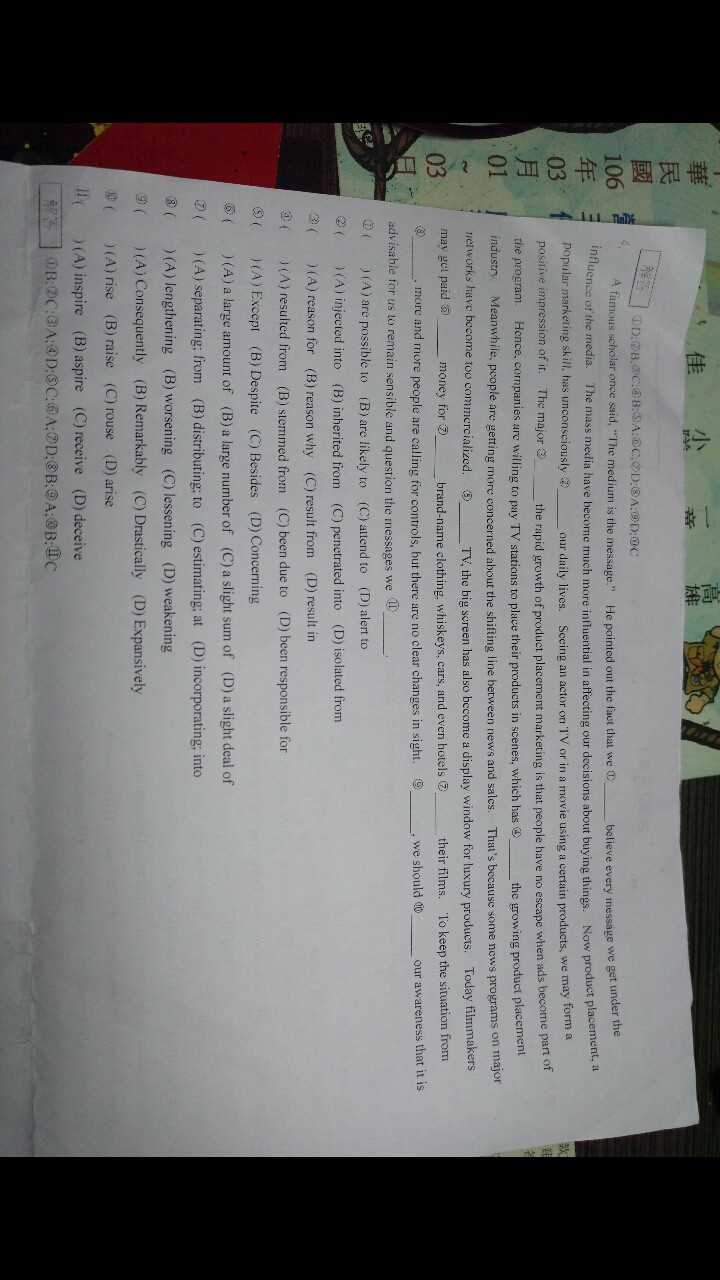 華
民
國
106
年
03
月
01
~
03
日
佳
小
一
章
高
雄
解答 ①D;②B;③C;④B;⑤A;⑥C;⑦D;⑧A;⑨D;⑩C
4.
A famous scholar once said, “The medium is the message.” He pointed out the fact that we ① ____ believe every message we get under the
influence of the media. The mass media have become much more influential in affecting our decisions about buying things. Now product placement, a
popular marketing skill, has unconsciously ② ____ our daily lives. Seeing an actor on TV or in a movie using a certain products, we may form a
positive impression of it. The major ③ ____ the rapid growth of product placement marketing is that people have no escape when ads become part of
the program. Hence, companies are willing to pay TV stations to place their products in scenes, which has ④ ____ the growing product placement
industry. Meanwhile, people are getting more concerned about the shifting line between news and sales. That’s because some news programs on major
networks have become too commercialized. ⑤ ____ TV, the big screen has also become a display window for luxury products. Today filmmakers
may get paid ⑥ ____ money for ⑦ ____ brand-name clothing, whiskeys, cars, and even hotels ⑦ ____ their films. To keep the situation from
⑧ ____, more and more people are calling for controls, but there are no clear changes in sight. ⑨ ____, we should ⑩ ____ our awareness that it is
advisable for us to remain sensible and question the messages we ⑪ ____.
① ( ) (A) are possible to (B) are likely to (C) attend to (D) alert to
② ( ) (A) injected into (B) inherited from (C) penetrated into (D) isolated from
③ ( ) (A) reason for (B) reason why (C) result from (D) result in
④ ( ) (A) resulted from (B) stemmed from (C) been due to (D) been responsible for
⑤ ( ) (A) Except (B) Despite (C) Besides (D) Concerning
⑥ ( ) (A) a large amount of (B) a large number of (C) a slight sum of (D) a slight deal of
⑦ ( ) (A) separating; from (B) distributing; to (C) estimating; at (D) incorporating; into
⑧ ( ) (A) lengthening (B) worsening (C) lessening (D) weakening
⑨ ( ) (A) Consequently (B) Remarkably (C) Drastically (D) Expansively
⑩ ( ) (A) rise (B) raise (C) rouse (D) arise
⑪ ( ) (A) inspire (B) aspire (C) receive (D) deceive
解答 ①B;②C;③A;④D;⑤C;⑥A;⑦D;⑧B;⑨A;⑩B;⑪C